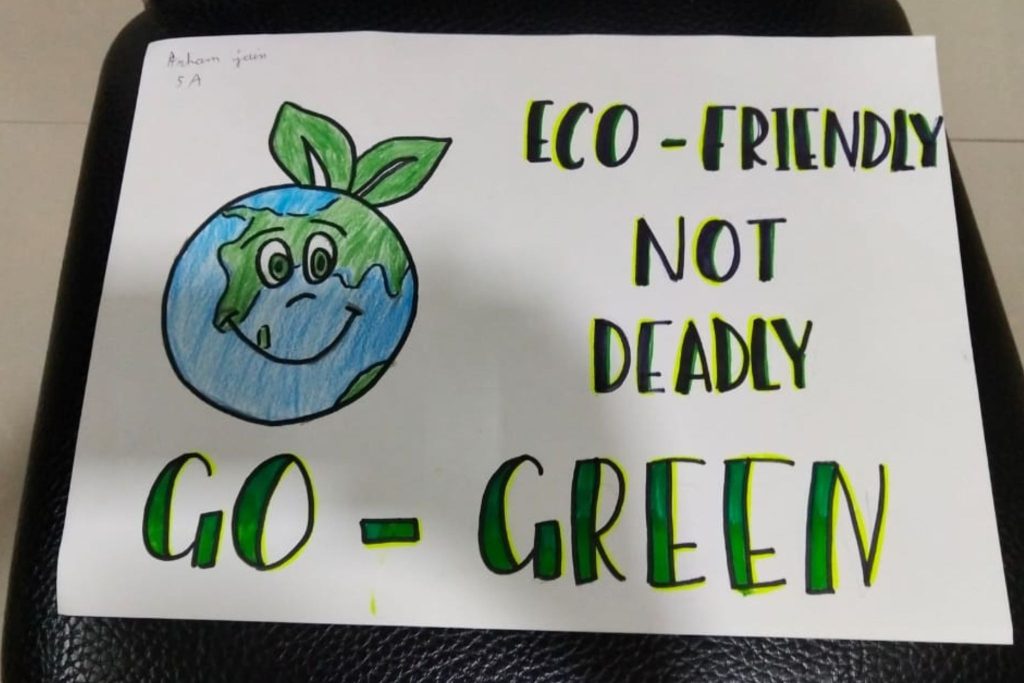 Arham jain
5 A
ECO - FRIENDLY
NOT
DEADLY
GO - GREEN